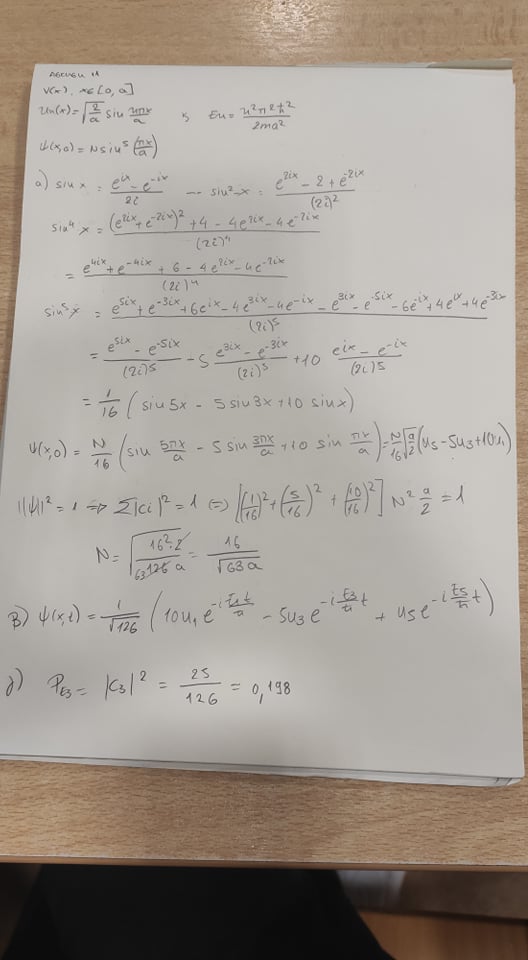 ΑΣΚΗΣΗ 11
V(x), x∈[0,a]
Un(x)=√(2/a) sin nπx/a , En = n²π²ħ²/2ma²
ψ(x,0)=N sin⁵(πx/a)
α) sinx = (e^{ix} - e^{-ix})/2i -- sin²x = (e^{2ix} - 2 + e^{-2ix})/(2i)²
sin⁴x = ((e^{2ix}+e^{-2ix})² + 4 - 4e^{2ix} - 4e^{-2ix})/(2i)⁴
= (e^{4ix} + e^{-4ix} + 6 - 4e^{2ix} - 4e^{-2ix})/(2i)⁴
sin⁵x = (e^{5ix} + e^{-3ix} + 6e^{ix} - 4e^{3ix} - 4e^{-ix} - e^{3ix} - e^{-5ix} - 6e^{-ix} + 4e^{ix} + 4e^{-3ix})/(2i)⁵
= (e^{5ix} - e^{-5ix})/(2i)⁵ - 5 (e^{3ix} - e^{-3ix})/(2i)⁵ + 10 (e^{ix} - e^{-ix})/(2i)⁵
= 1/16 (sin5x - 5sin3x + 10sinx)
ψ(x,0) = N/16 (sin 5πx/a - 5 sin 3πx/a + 10 sin πx/a) = N/16 √(a/2) (u5 - 5u3 + 10u1)
||ψ||² = 1 ⇒ Σ|ci|² = 1 ⇒ [(1/16)² + (5/16)² + (10/16)²] N² a/2 = 1
N = √(16²·2/126 a) 63 = 16/√(63a)
β) ψ(x,t) = 1/√126 (10u1 e^{-i E1t/ħ} - 5u3 e^{-i E3/ħ t} + u5 e^{-i E5/ħ t})
γ) PE3 = |c3|² = 25/126 = 0,198